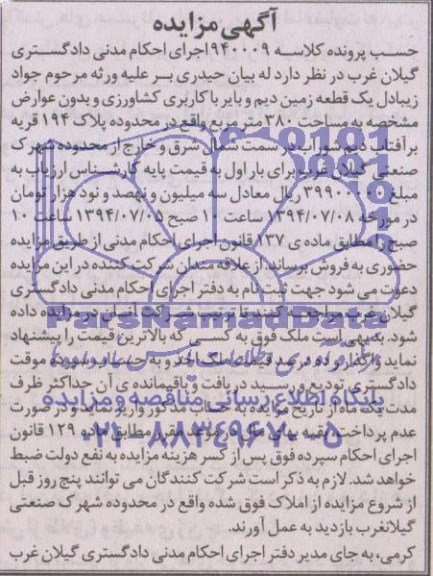 آگهی مزایده
حسب پرونده کلاسه ۹۴۰۰۰۹ اجرای احکام مدنی دادگستری
گیلان غرب در نظر دارد له بیان حیدری بر علیه ورثه مرحوم جواد
زیبادل یک قطعه زمین دیم و بایر با کاربری کشاورزی و بدون عوارض
مشخصه به مساحت ۳۸۰ متر مربع واقع در محدوده پلاک ۱۹۴ قریه
برآفتاب دیم شوراب در سمت شمال شرق و خارج از محدوده شهرک
صنعتی گیلان غرب برای بار اول به قیمت پایه کارشناس ارزیاب به
مبلغ ریال معادل سه میلیون و نهصد و نود هزار تومان
در مورخه ۱۳۹۴/۰۷/۰۸ ساعت ۱۰ صبح ۱۳۹۴/۰۷/۰۵ ساعت ۱۰
صبح را مطابق ماده ی ۱۳۷ قانون اجرای احکام مدنی از طریق مزایده
حضوری به فروش برساند. از علاقه مندان شرکت کننده در این مزایده
دعوت می شود جهت ثبت نام به دفتر اجرای احکام مدنی دادگستری
گیلان غرب مراجعه کنند تا ترتیب شرکت ایشان در مزایده داده
شود. بدیهی است ملک فوق به کسی که بالاترین قیمت را پیشنهاد
نماید واگذار و ده درصد قیمت ملک اخذ و به حساب سپرده موقت
دادگستری تودیع و رسید دریافت و باقیمانده ی آن حداکثر ظرف
مدت یک ماه از تاریخ مزایده به حساب مذکور واریز نماید و در صورت
عدم پرداخت بقیه بهای مطابق ماده ۱۲۹ قانون
اجرای احکام سپرده فوق پس از کسر هزینه مزایده به نفع دولت ضبط
خواهد شد. لازم به ذکر است شرکت کنندگان می توانند پنج روز قبل
از شروع مزایده از املاک فوق شده واقع در محدوده شهرک صنعتی
گیلانغرب بازدید به عمل آورند.
کرمی، به جای مدیر دفتر اجرای احکام مدنی دادگستری گیلان غرب
ParsNamadData
پایگاه اطلاع رسانی مناقصه و مزایده
۰۲۱-۸۸۳۴۹۶۷۰-۵